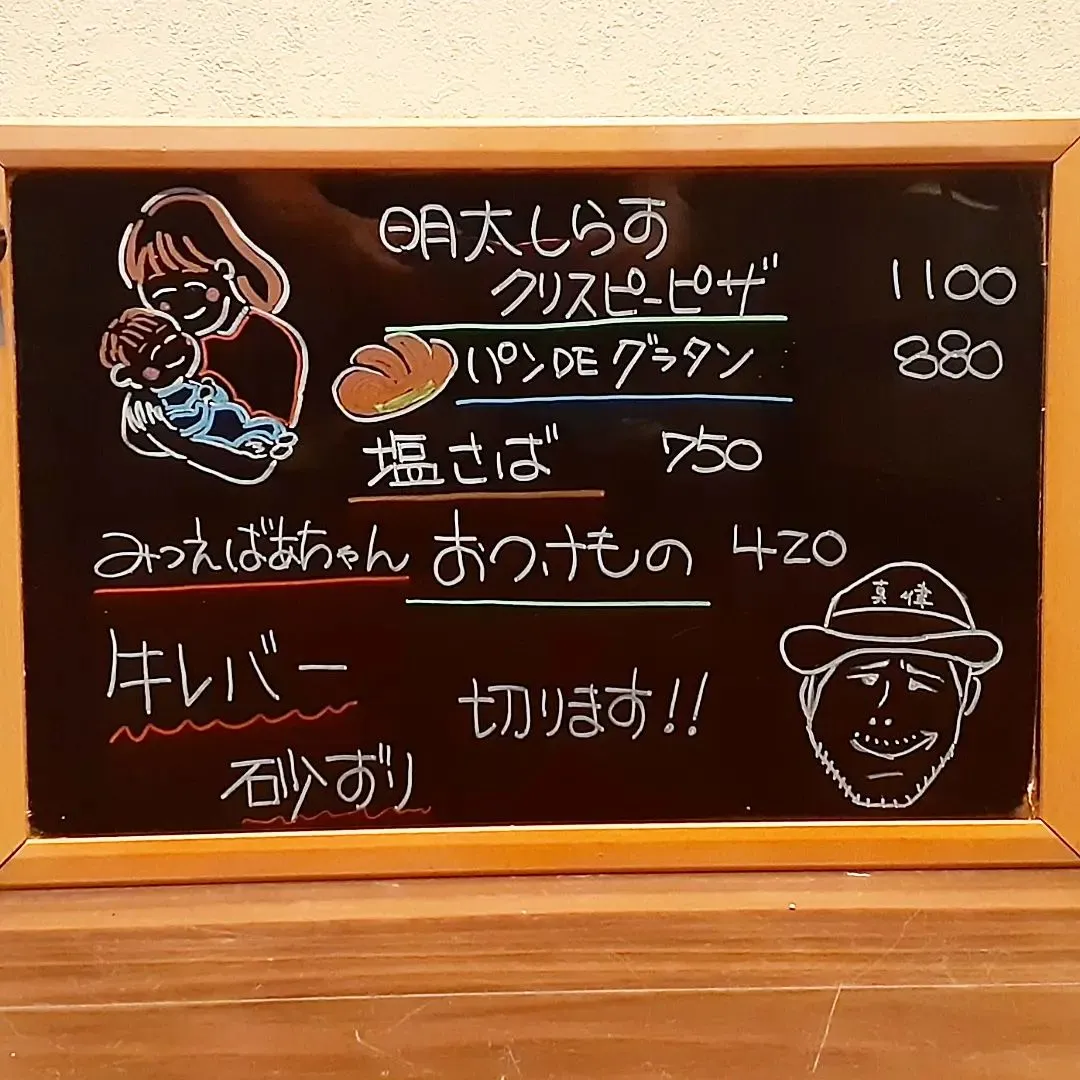 明太しらす
クリスピーピザ 1100
パンDEグラタン 880
塩さば 750
みつえばあちゃん おつけもの 420
真偉
牛レバー
切ります!!
砂ずり